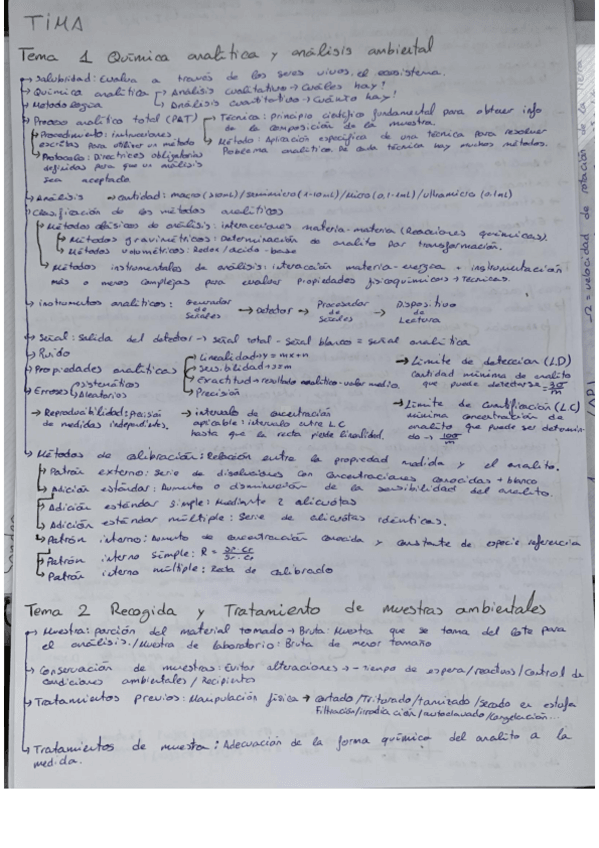 TIMA
Tema 1 Química analítica y análisis ambiental
Salubridad: Evalua a través de los seres vivos el ecosistema.
Química analítica → Análisis cualitativo → Cuáles hay?
Metodología → Análisis cuantitativo → Cuánto hay?
Proceso analítico total (PAT) → Técnica: principio científico fundamental para obtener info
de la composición de la muestra.
Procedimiento: instrucciones
escritas para utilizar un método
Método: Aplicación específica de una técnica para resolver
problema analítico. De cada técnica hay muchos métodos.
Protocolo: Directrices obligatorias
definidas para que un análisis
sea aceptado
Análisis → cantidad: macro / semimicro (1-10mL) / micro (0,1-1mL) / ultramicro (0,1mL)
Clasificación de los métodos analíticos
Métodos clásicos de análisis: interacciones materia-materia (Reacciones químicas).
Métodos gravimétricos: Determinación de analito por transformación.
Métodos volumétricos: Redox / ácido-base
Métodos instrumentales de análisis: interacción materia-energia + instrumentación
más o menos complejas para evaluar propiedades fisicoquímicas → Técnicas.
instrumentos analíticos: Generador de señales → Detector → Procesador de señales → Dispositivo de Lectura
Señal: Salida del detector → señal total - señal blanco = señal analítica
Ruido
Propiedades analíticas
Linealidad → y = mx + n
Sensibilidad →
Exactitud → resultado analítico - valor medio
Precisión
Errores Sistemáticos
Aleatorios
→ Límite de detección (LD)
cantidad mínima de analito
que puede detectarse = 3σ/m
→ Límite de Cuantificación (LC)
mínima concentración de
analito que puede ser determinado → 10σ/m
→ Reproducibilidad: Precisión
de medidas independientes.
→ intervalo de concentración
aplicable: intervalo entre LC
hasta que la recta pierde linealidad.
Métodos de calibración: Relación entre la propiedad medida y el analito.
Patrón externo: Serie de disoluciones con concentraciones conocidas + blanco
Adición estándar: Aumento o disminución de la sensibilidad del analito.
Adición estándar simple: Mediante 2 alicuotas
Adición estándar múltiple: Serie de alicuotas idénticas.
Patrón interno: Aumento de concentración conocida y constante de especie referencia
Patrón interno simple: R =
Patrón interno múltiple: Recta de calibrado
Tema 2 Recogida y Tratamiento de muestras ambientales
Muestra: porción del material tomado → Bruta: Muestra que se toma del lote para
el análisis. / Muestra de laboratorio: Bruta de menor tamaño
Conservación de muestras: Evitar alteraciones → - tiempo de espera / reactivos / control de
condiciones ambientales / Recipientes
Tratamientos previos: Manipulación física → cortado / Triturado / tamizado / secado en estufa
Filtración / irradiación / autoclavado / congelación...
Tratamientos de muestra: Adecuación de la forma química del analito a la
medida.
Ω = velocidad de rotación de la